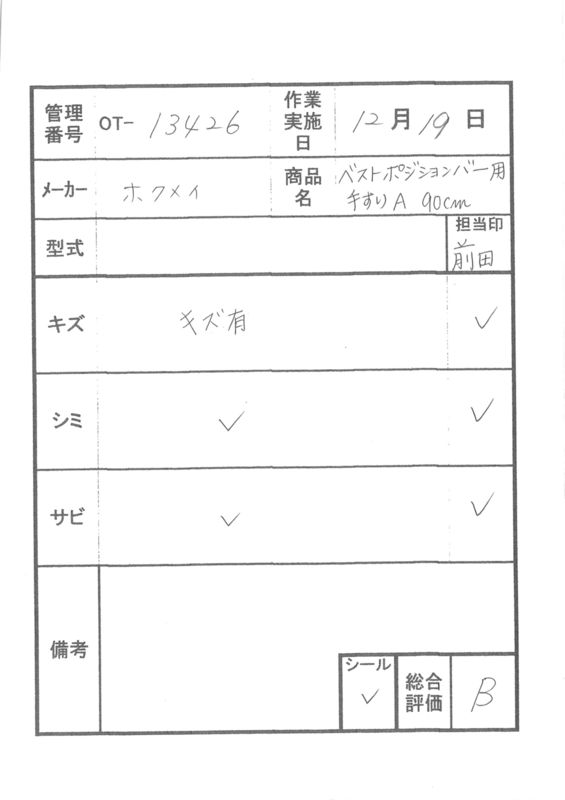 管理番号 OT- 13426 作業実施日 12月19日
メーカー ホクメイ 商品名 ベストポジションバー用
手すりA 90cm
型式 担当印
前田
キズ キズ有 ✓
シミ ✓ ✓
サビ ✓ ✓
備考
シール ✓ 総合評価 B